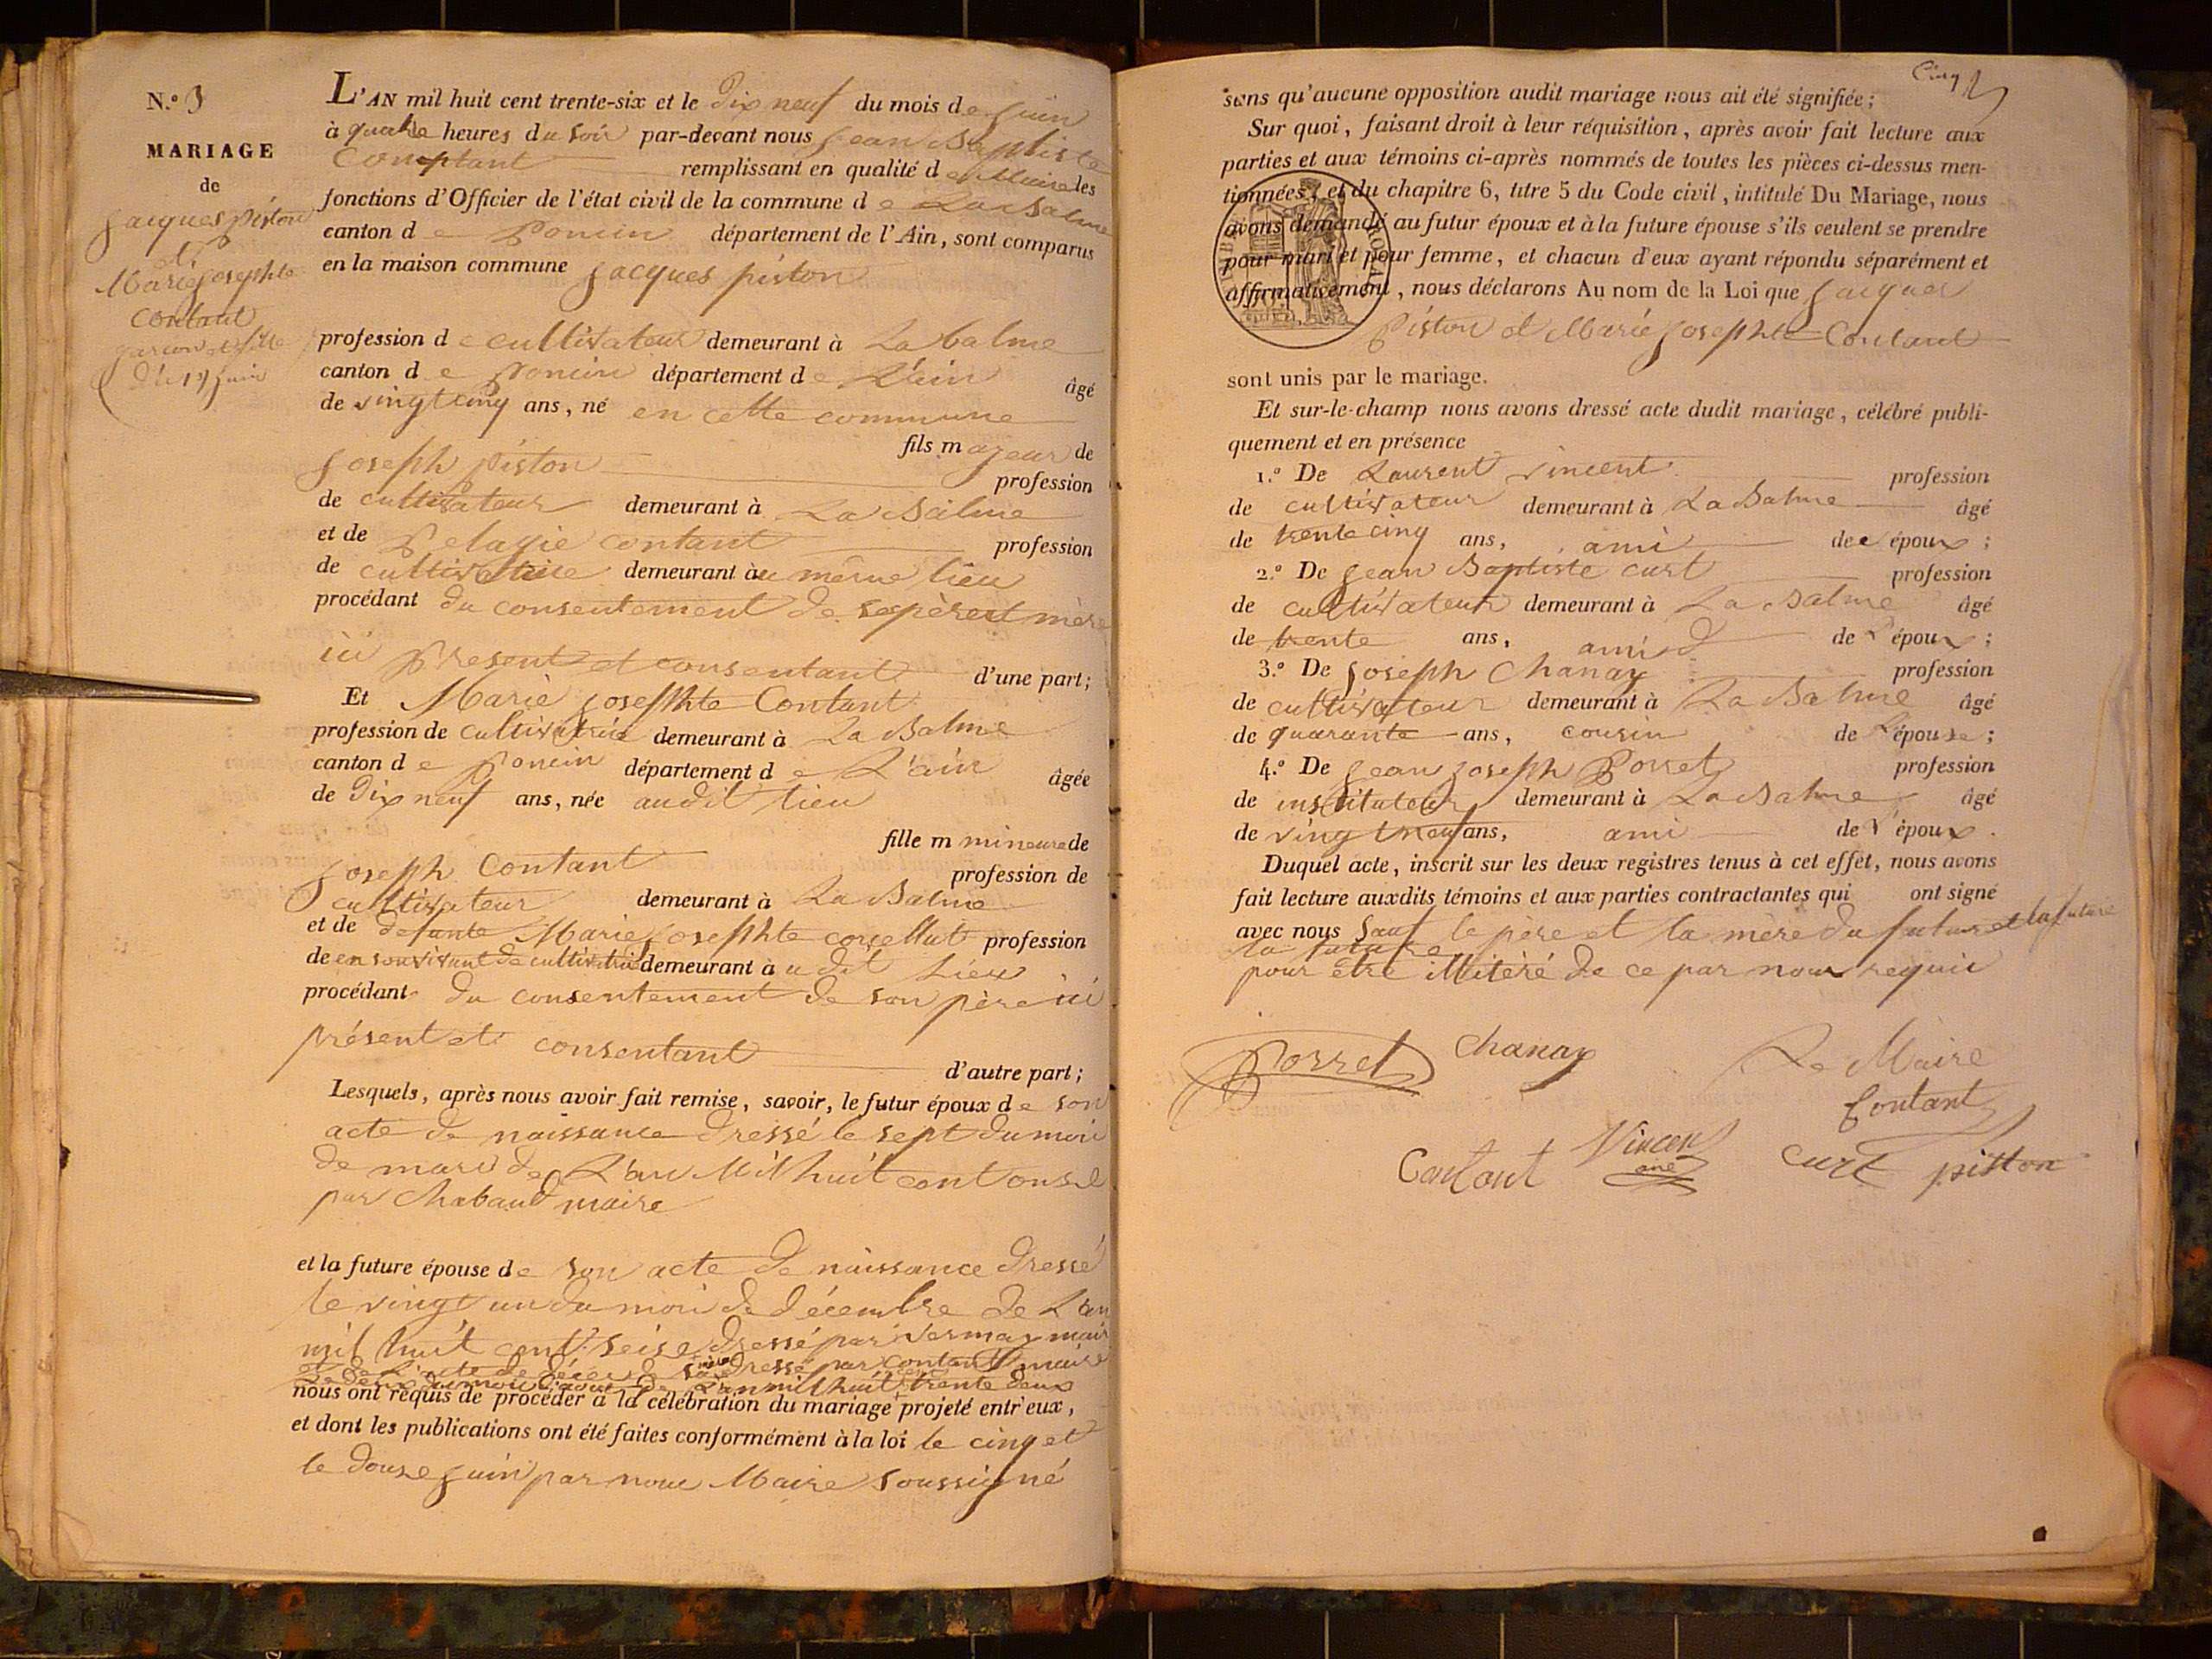 N.o 3
MARIAGE
de
Jacques piston
et
Marie Josephte
Contant
garcon et fille
du 19 juin
L'AN mil huit cent trente-six et le Dix neuf du mois de Juin
à quatre heures du soir par-devant nous Jean Baptiste
Comptant remplissant en qualité de Maire les
fonctions d'Officier de l'état civil de la commune de La Balme
canton de Poncin département de l'Ain, sont comparus
en la maison commune Jacques piston
profession de cultivateur demeurant à La balme
canton de poncin département de L'ain âgé
de vingt cinq ans, né en cette commune
fils majeur de
Joseph piston profession
de cultivateur demeurant à La Balme
et de Pelagie contant profession
de cultivatrice demeurant au même lieu
procédant du consentement de ses père et mère
ici Present et consentant d'une part;
Et Marie josephte Contant
profession de cultivatrice demeurant à La Balme
canton de poncin département de L'ain âgée
de Dix neuf ans, née audit lieu
fille m mineure de
Joseph Contant profession de
cultivateur demeurant à La Balme
et de defunte Marie Josephte profession
de en son vivant de cultivatrice demeurant audit Lieu
procédant du consentement de son père ici
présent et consentant
d'autre part;
Lesquels, après nous avoir fait remise, savoir, le futur époux de son
acte de naissance dressé le sept du mois
de mars de L'an Mil huit cent onze
par Chabaud maire
et la future épouse de son acte de naissance dressé
le vingt un du mois de décembre de L'an
mil huit cent seise dressé par Vermay maire
et de L'acte de décès de sa mère dressé par contant maire
Le deux du mois d'aout de L'an mil huit cent trente deux
nous ont requis de procéder à la célébration du mariage projeté entr'eux,
et dont les publications ont été faites conformément à la loi le cinq et
le douse juin par nous Maire soussigné
Cinq
sans qu'aucune opposition audit mariage nous ait été signifiée;
Sur quoi, faisant droit à leur réquisition, après avoir fait lecture aux
parties et aux témoins ci-après nommés de toutes les pièces ci-dessus men-
tionnées, et du chapitre 6, titre 5 du Code civil, intitulé Du Mariage, nous
avons demandé au futur époux et à la future épouse s'ils veulent se prendre
pour mari et pour femme, et chacun d'eux ayant répondu séparément et
affirmativement, nous déclarons Au nom de la Loi que Jacques
Piston et Marie Josephte Contant
sont unis par le mariage.
Et sur-le-champ nous avons dressé acte dudit mariage, célébré publi-
quement et en présence
1.o De Laurent vincent profession
de cultivateur demeurant à La Balme âgé
de trente cinq ans, ami de époux;
2.o De Jean Baptiste curt profession
de cultivateur demeurant à La Balme âgé
de trente ans, ami de L'époux;
3.o De Joseph Chanay profession
de cultivateur demeurant à La Balme âgé
de quarante ans, cousin de L'épouse;
4.o De Jean Joseph Porret profession
de instituteur demeurant à La Balme âgé
de vingt neuf ans, ami de L'époux.
Duquel acte, inscrit sur les deux registres tenus à cet effet, nous avons
fait lecture auxdits témoins et aux parties contractantes qui ont signé
avec nous Sauf le père et la mère du futur et la future
la future
pour être illitéré de ce par nous requis
Porret Chanay Le Maire
Contant
Contant Vincent ané Curt piston